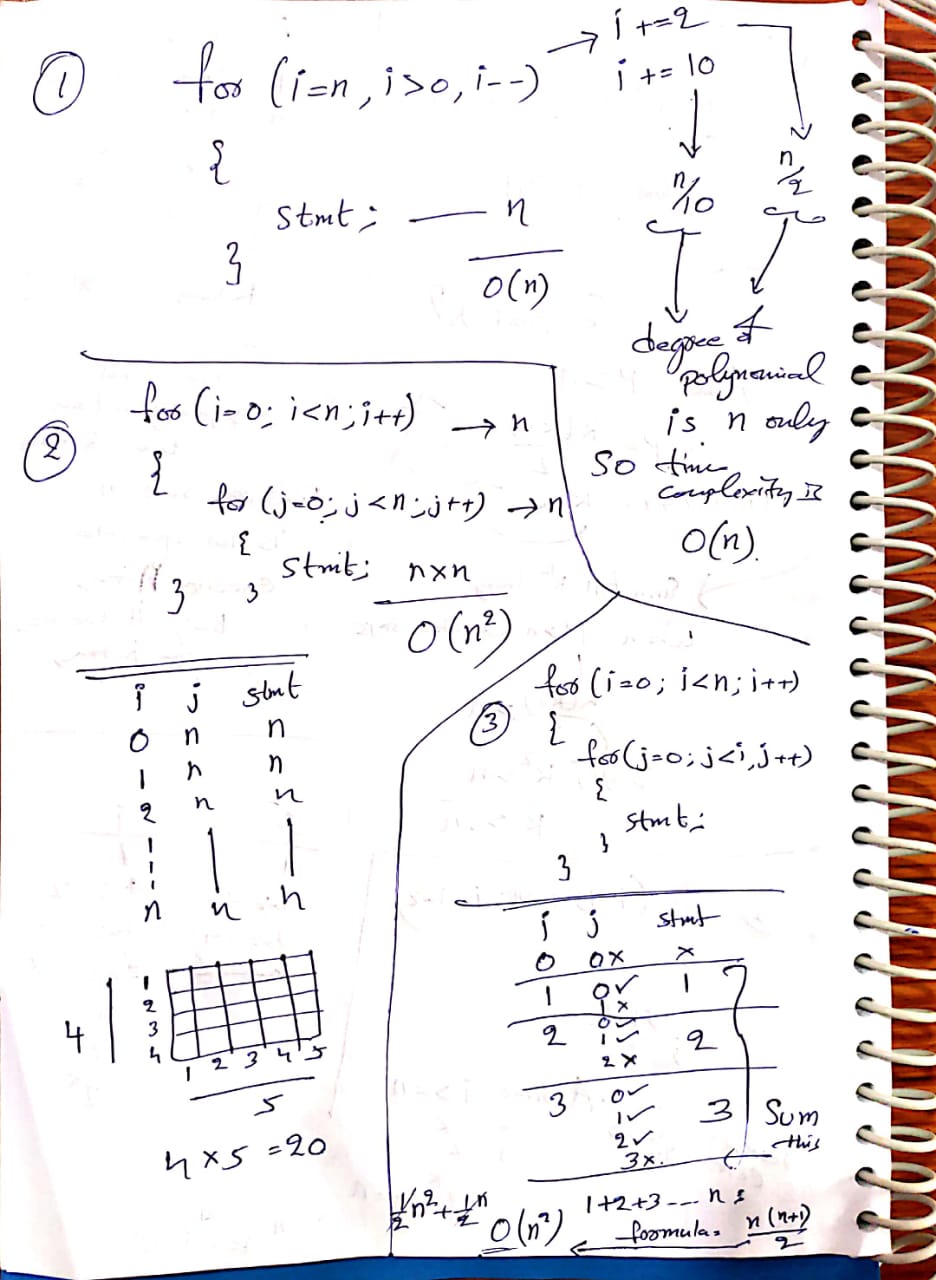 ①
for (i=n, i>0, i--) → i +=2
i += 10
{
n/10
n/2
stmt; — n
}
O(n)
degree of
polynomial
is n only
So time
complexity is
O(n).
②
for (i=0; i<n; i++) → n
{
for (j=0; j<n; j++) → n
{
stmt; n×n
}
}
O(n²)
i j stmt
0 n n
1 n n
2 n n
n n n
4
1
2
3
4
1 2 3 4 5
5
4×5 =20
③
for (i=0; i<n; i++)
{
for(j=0; j<i, j++)
{
stmt;
}
}
i j stmt
0 0× ×
1 0✓ 1
1×
2 0✓
1✓ 2
2×
3 0✓
1✓ 3
2✓
3×
Sum
this
1+2+3---n :
formula = n(n+1)/2
1/2 n² + 1/2 n
O(n²)